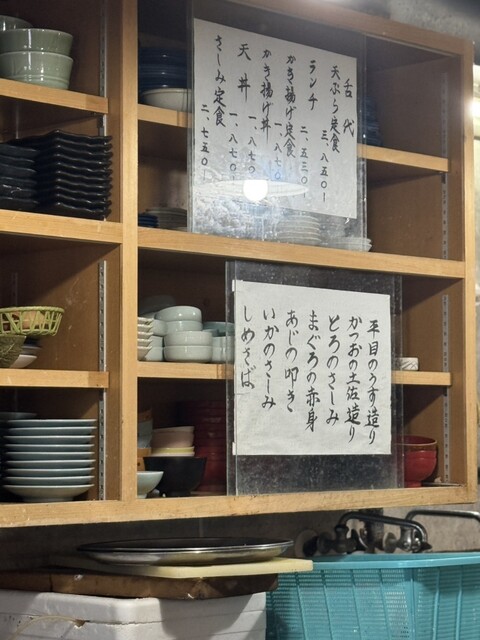 舌代
天ぷら定食 三、八五〇ー
ランチ 二、五三〇ー
かき揚げ定食 一、八七〇ー
かき揚げ丼 一、八七〇ー
天丼 一、八七〇ー
さしみ定食 二、七五〇ー
平目のうす造り
かつおの土佐造り
とろのさしみ
まぐろの赤身
あじの叩き
いかのさしみ
しめさば